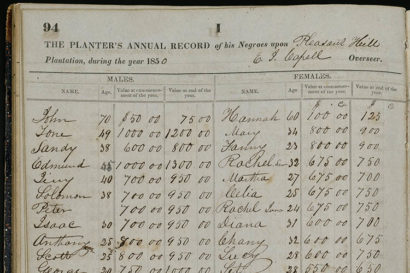 94
I
THE PLANTER'S ANNUAL RECORD of his Negroes upon Pleasant Hill
Plantation, during the year 1850 Overseer.
MALES. FEMALES.
NAME. Age. Value at commencement of the year. Value at end of the year. NAME. Age. Value at commencement of the year. Value at end of the year.
John 70 $50 00 75 00 Hannah 60 100 00 125
49 1000 00 1200 00 Mary 34 800 00 900
Sandy 38 600 00 800 00 Fanny 23 800 00 900
Edmund 1000 00 1300 00 Rachel 32 675 00 750
40 700 00 950 00 Martha 27 675 00 700
Solomon 38 700 00 950 00 Celia 25 675 00 750
Peter 700 00 950 00 Rachel 24 675 00 750
Isaac 30 700 00 950 00 Diana 31 600 00 700
Anthony 25 800 00 950 00 Chany 32 600 00 675
Scott 25 800 00 950 00 Lucy 28 600 00 750
George